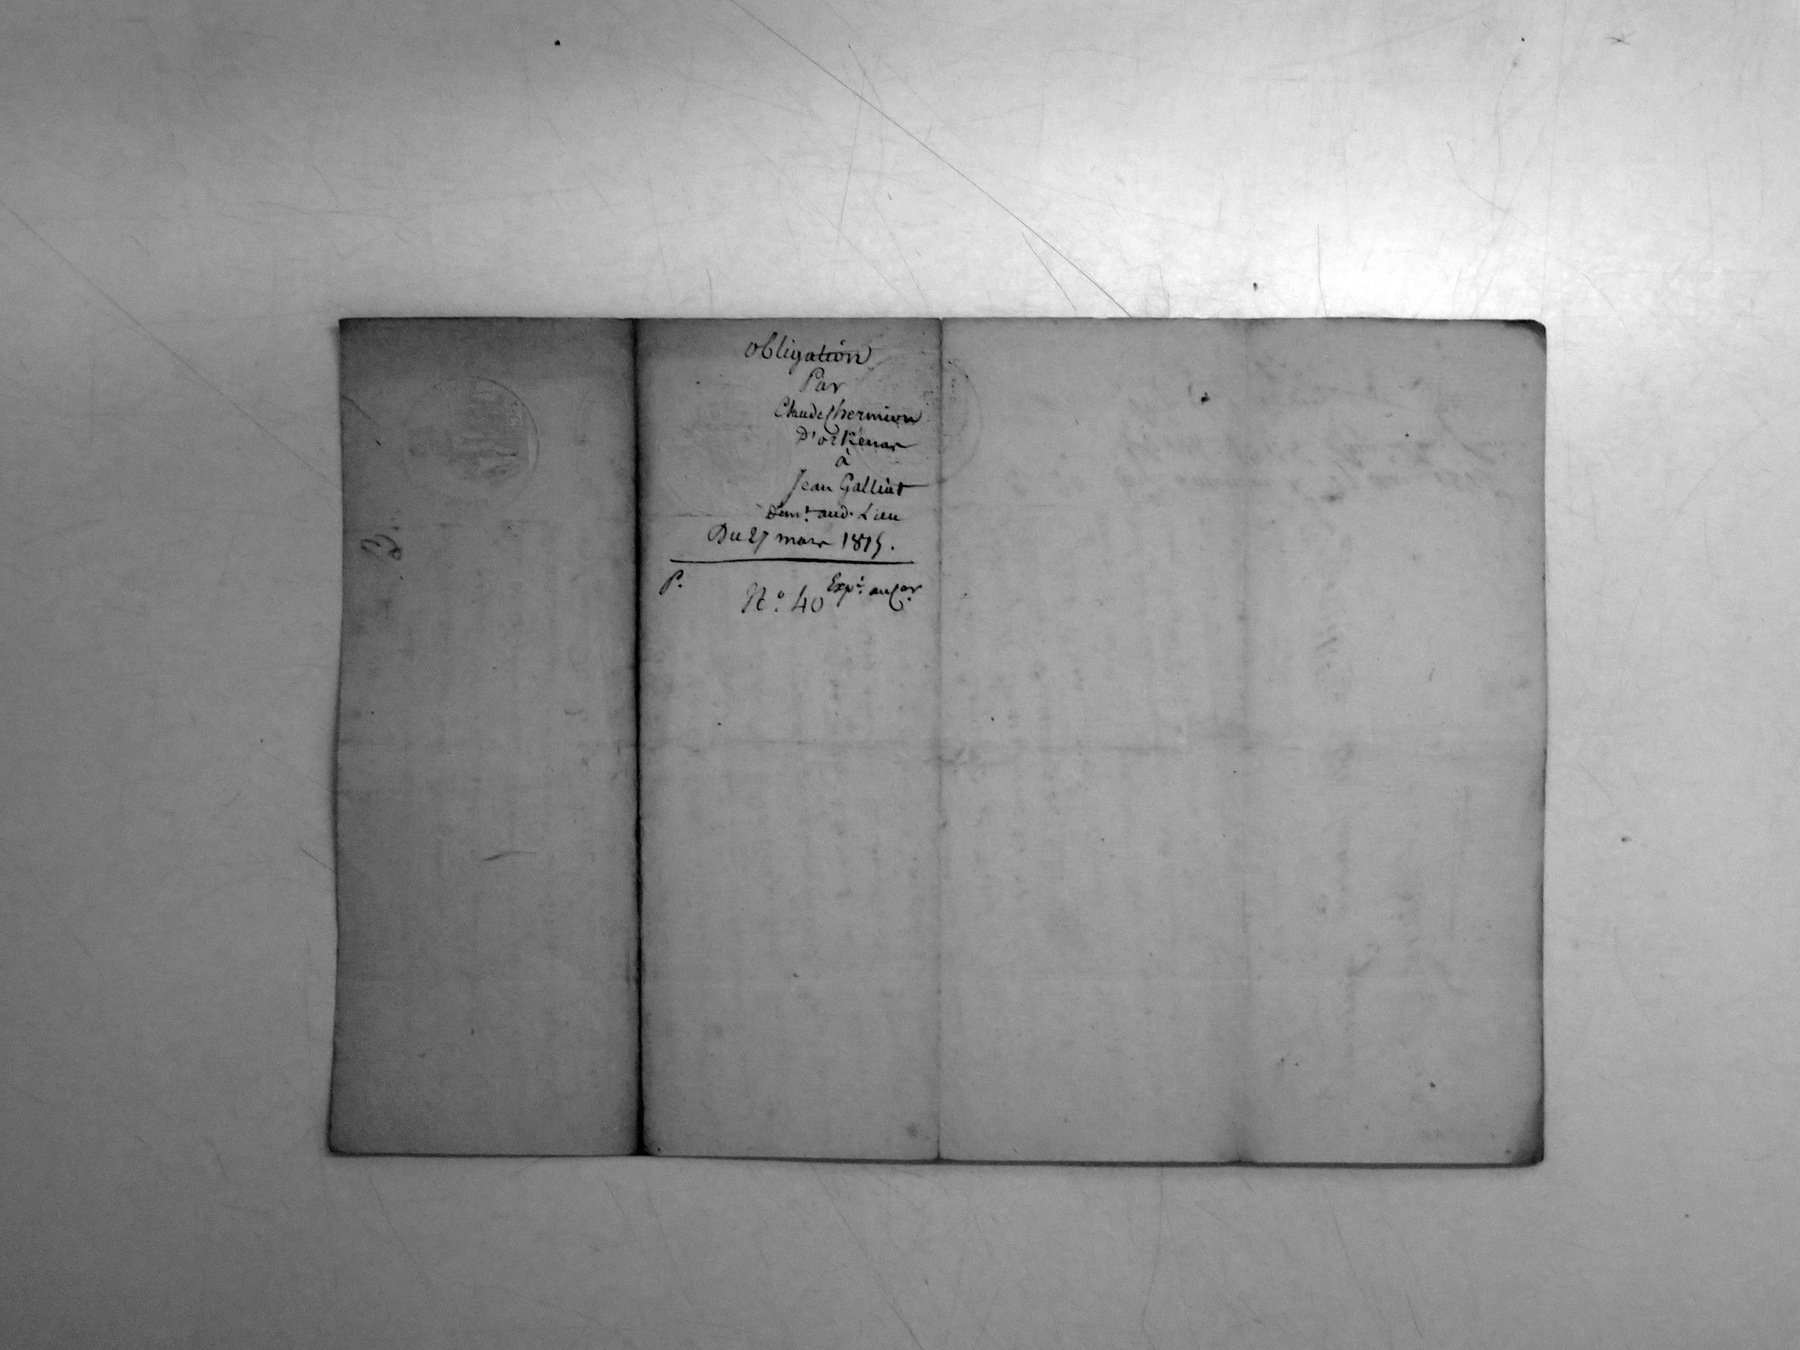 Obligation
Par
Claude Chermion
à
Jean Galliat
Dem.t aud. Lieu
Du 27 mars 1815.
P.
Exp.é au Cer
N.o 40